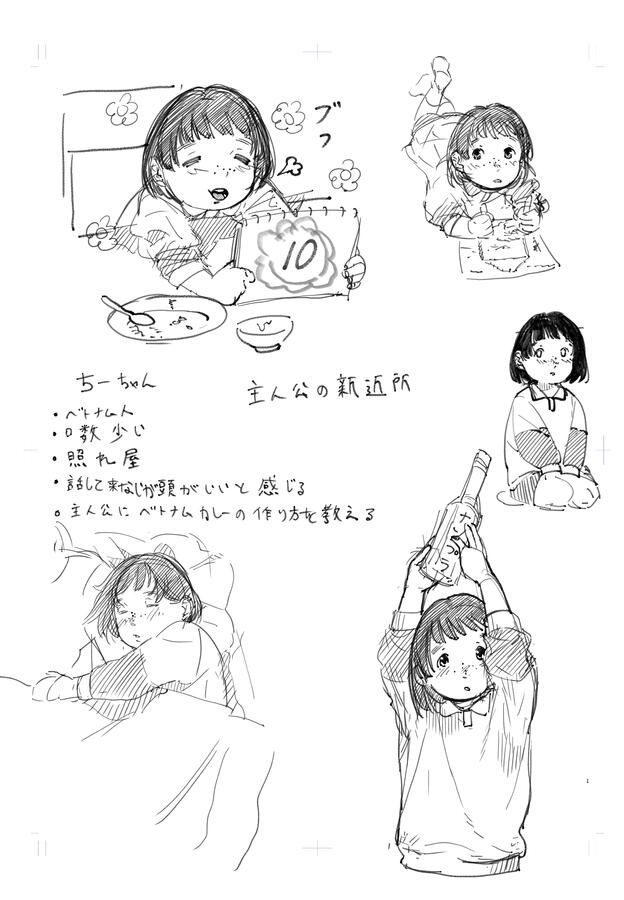 ブフ
10
ちーちゃん
主人公の新近所
・ベトナム人
・口数少い
・照れ屋
・話して来なじが頭がいいと感じる
・主人公にベトナムカレーの作り方を教える